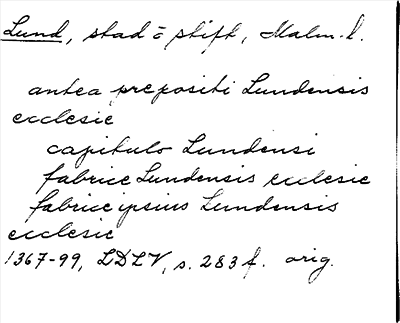 Lund, stad o stift, Malm. l.
antea prepositi Lundensis
ecclesie
capitulo Lundensi
fabrice Lundensis ecclesie
fabrice ipsius Lundensis
ecclesie
1367-99, LDLV, s. 283 f. orig.